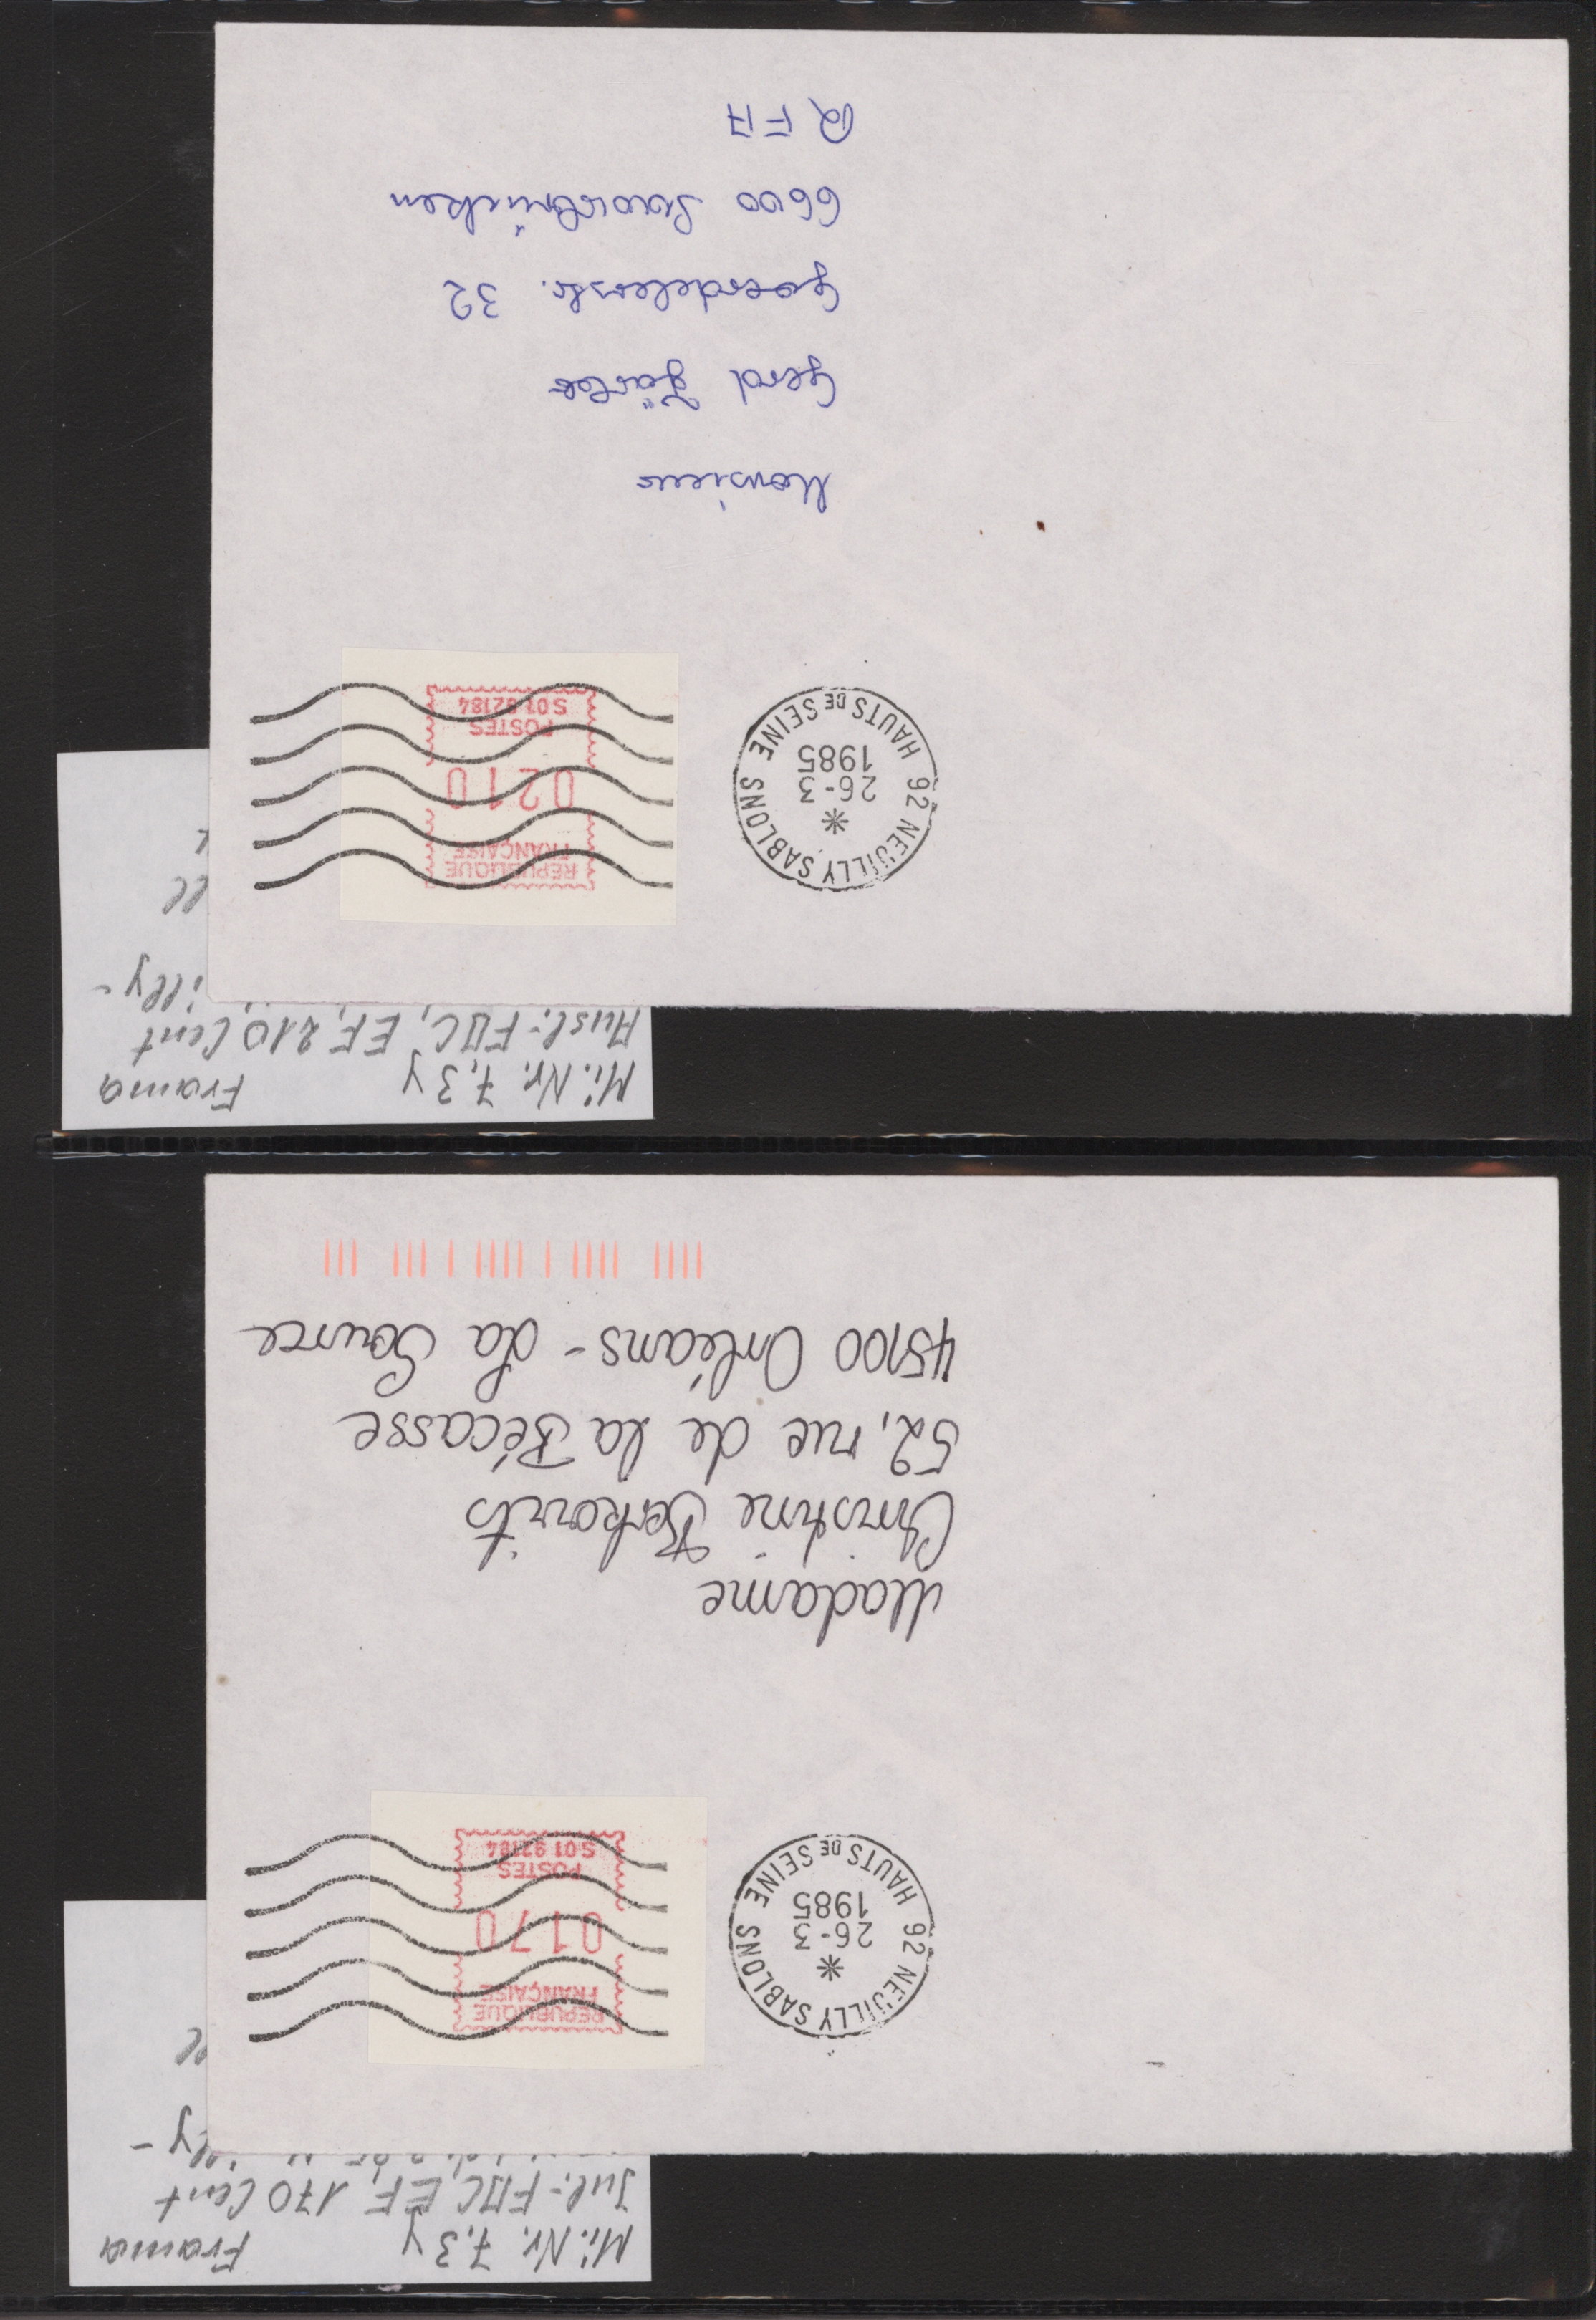 Mi. Nr. 7, 3 y Frama
Jnl.-FDC, EF, 170 Cent
REPUBLIQUE
FRANÇAISE
0170
POSTES
S.01 92184
92 NEUILLY SABLONS
26-3
1985
HAUTS DE SEINE
Madame
Christine Berkovits
52, rue de la Bécasse
45100 Orléans - La Source
Mi. Nr. 7, 3 y Frama
Ausl.-FDC, EF, 210 Cent
REPUBLIQUE
FRANÇAISE
0210
POSTES
S.01 92184
92 NEUILLY SABLONS
26-3
1985
HAUTS DE SEINE
Monsieur
Gerd
Goerdelerstr. 32
6600 Saarbrücken
RFA